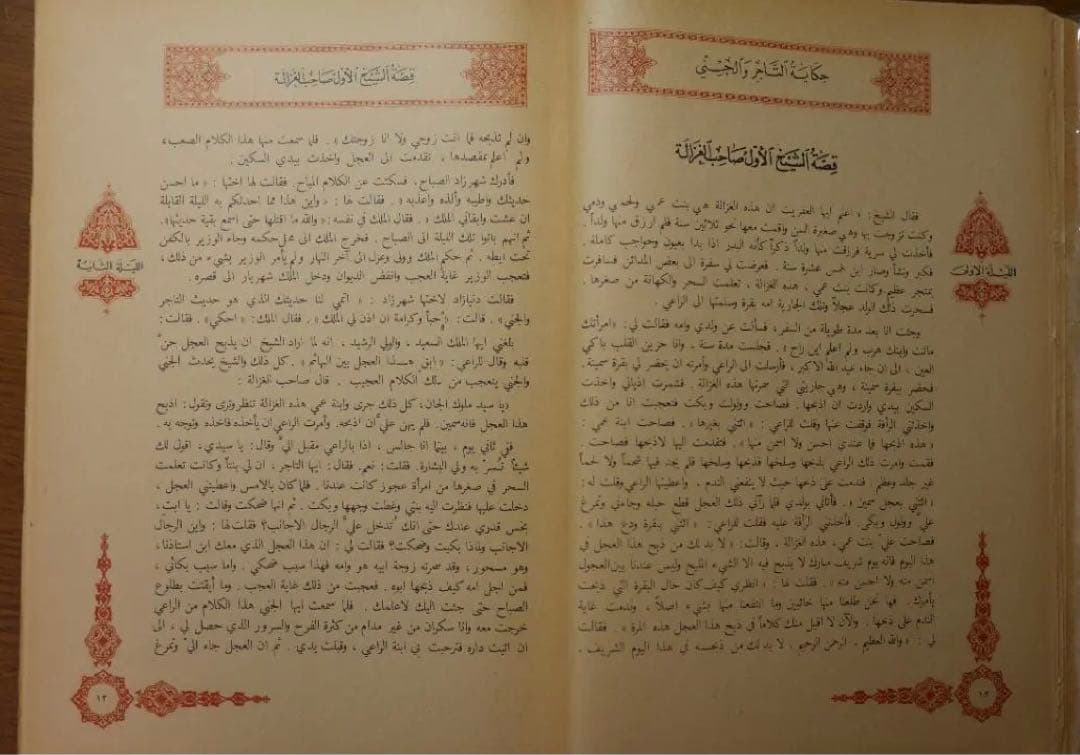 حكاية التاجر والجني
قصة الشيخ الأول صاحب الغزالة
الليلة الاولى
قال الشيخ: « اعلم ايها العفريت ان هذه الغزالة هي بنت عمي ولحمي ودمي
وكنت تزوجت بها وهي صغيرة السن واقمت معها نحو ثلاثين سنة فلم ارزق منها ولداً.
فأخذت لي سرية فرزقت منها ولداً ذكراً كأنه البدر اذا بدا بعيون وحواجب كاملة.
فكبر ونشأ وصار ابن خمس عشرة سنة. فعرضت لي سفرة الى بعض المدائن فسافرت
بمتجر عظيم وكانت بنت عمي، هذه الغزالة، تعلمت السحر والكهانة من صغرها.
فسحرت ذلك الولد عجلاً وتلك الجارية امه بقرة وسلمتها الى الراعي.
وجئت انا بعد مدة طويلة من السفر، فسألت عن ولدي وامه فقالت لي: «امرأتك
ماتت وابنك هرب ولم اعلم اين راح». فجلست مدة سنة، وانا حزين القلب باكي
العين، الى ان جاء عيد الله الاكبر، فأرسلت الى الراعي وأمرته ان يحضر لي بقرة سمينة.
فحضر ببقرة سمينة، وهي جاريتي التي سحرتها هذه الغزالة. فشمرت اذيالي واخذت
السكين بيدي واردت ان اذبحها. فصاحت وولولت وبكت فتعجبت انا من ذلك
واخذتني الرأفة فوقفت عنها وقلت للراعي: « ائتني بغيرها». فصاحت ابنة عمي:
« هذه اذبحها فما عندي احسن ولا اسمن منها». فتقدمت اليها لاذبحها فصاحت.
فقمت وامرت ذلك الراعي بذبحها وسلخها فذبحها وسلخها فلم يجد فيها شحماً ولا لحماً
غير جلد وعظم. فندمت على ذبحها حيث لا ينفعني الندم. واعطيتها الراعي وقلت له:
« ائتني بعجل سمين». فأتاني بولدي فلما رآني ذلك العجل قطع حبله وجاءني وتمرغ
علي وولول وبكى. فأخذتني الرأفة عليه فقلت للراعي: « ائتني ببقرة ودع هذا».
فصاحت عليّ بنت عمي، هذه الغزالة. وقالت: « لا بد لك من ذبح هذا العجل في
هذا اليوم فانه يوم شريف مبارك لا يذبح فيه الا الشيء المليح وليس عندنا بين العجول
اسمن منه ولا احسن منه». فقلت لها: « انظري كيف كان حال البقرة التي ذبحت
بأمرك. فها نحن طلعنا منها خائبين وما انتفعنا منها بشيء اصلاً. وندمت غاية
الندم على ذبحها. والآن لا اقبل منك كلاماً في ذبح هذا العجل هذه المرة». فقالت
لي: « والله العظيم. الرحمن الرحيم، لا بد لك من ذبحه في هذا اليوم الشريف.
١٢
قصة الشيخ الأول صاحب الغزالة
الليلة الثانية
وان لم تذبحه فما انت زوجي ولا انا زوجتك». فلما سمعت منها هذا الكلام الصعب،
ولم اعلم بمقصدها، تقدمت الى العجل واخذت بيدي السكين.
فأدرك شهرزاد الصباح، فسكتت عن الكلام المباح. فقالت لها اختها: « ما احسن
حديثك واطيبه وألذه واعذبه». فقالت لها: « واين هذا مما احدثكم به الليلة القابلة
ان عشت وابقاني الملك». فقال الملك في نفسه: «والله ما اقتلها حتى اسمع بقية حديثها».
ثم انهم باتوا تلك الليلة الى الصباح. فخرج الملك الى محل حكمه وجاء الوزير بالكفن
تحت ابطه. ثم حكم الملك وولى وعزل الى آخر النهار ولم يأمر الوزير بشيء من ذلك،
فتعجب الوزير غاية العجب وانفض الديوان ودخل الملك شهريار الى قصره.
فقالت دنيازاد لاختها شهرزاد: « اتمي لنا حديثك الذي هو حديث التاجر
والجني». قالت: «حباً وكرامة ان اذن لي الملك». فقال الملك: « احكي». فقالت:
بلغني ايها الملك السعيد، والولي الرشيد، انه لما اراد الشيخ ان يذبح العجل حنّ
قلبه وقال للراعي: « ابق هذا العجل بين البهائم». كل ذلك والشيخ يحدث الجني
والجني يتعجب من ذلك الكلام العجيب. قال صاحب الغزالة:
«يا سيد ملوك الجان، كل ذلك جرى وابنة عمي هذه الغزالة تنظر وترى وتقول: اذبح
هذا العجل فانه سمين. فلم يهن عليّ ان اذبحه. وأمرت الراعي ان يأخذه فاخذه وتوجه به.
ففي ثاني يوم، بينما انا جالس، اذا بالراعي مقبل اليّ وقال: يا سيدي، اقول لك
شيئاً تُسر به ولي البشارة. فقلت: نعم. فقال: ايها التاجر، ان لي بنتاً وكانت تعلمت
السحر في صغرها من امرأة عجوز كانت عندنا. فلما كان بالامس واعطيتني العجل،
دخلت عليها فنظرت اليه بنتي وغطت وجهها وبكت. ثم انها ضحكت وقالت: يا ابت،
بخس قدري عندك حتى انك تُدخل عليّ الرجال الاجانب؟ فقلت لها: واين الرجال
الاجانب ولماذا بكيت وضحكت؟ فقالت لي: ان هذا العجل الذي معك ابن استاذنا،
وهو مسحور، وقد سحرته زوجة ابيه هو وامه فهذا سبب ضحكي. واما سبب بكائي،
فمن اجل امه كيف ذبحها ابوه. فعجبت من ذلك غاية العجب. وما أيقنت بطلوع
الصباح حتى جئت اليك لاعلمك. فلما سمعت ايها الجني هذا الكلام من الراعي
خرجت معه وانا سكران من غير مدام من كثرة الفرح والسرور الذي حصل لي، الى
ان اتيت داره فترحبت بي ابنة الراعي، وقبلت يدي. ثم ان العجل جاء اليّ وتمرغ
١٣